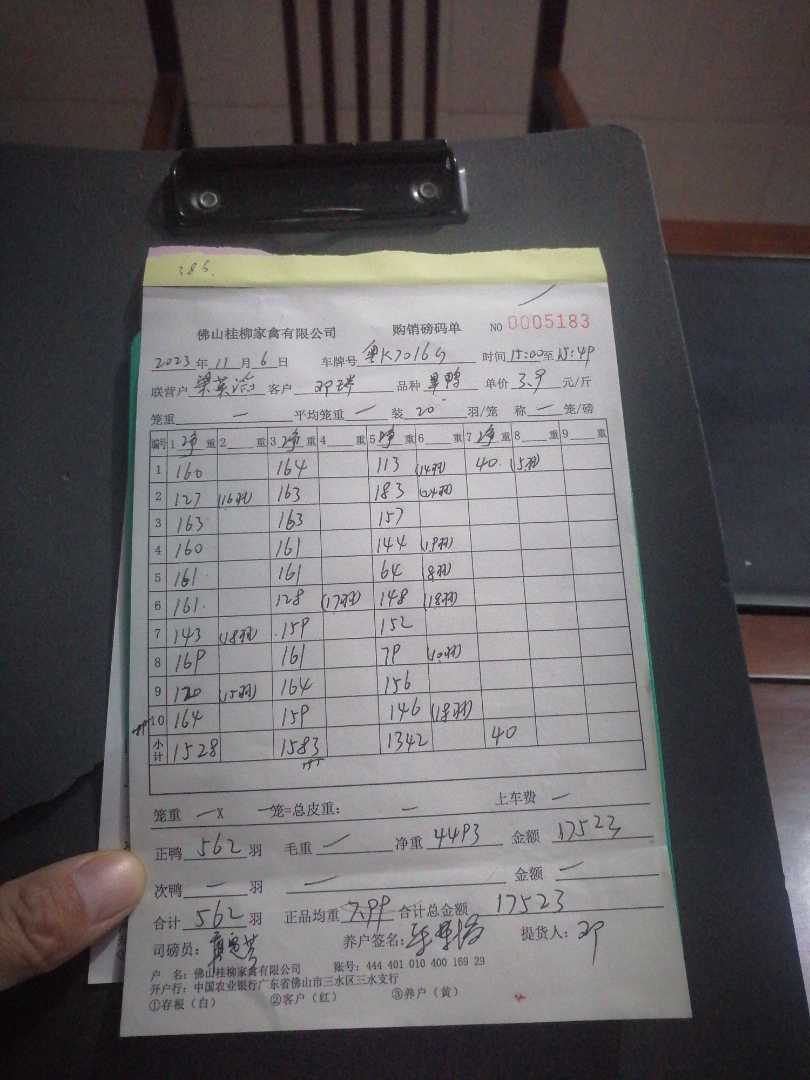 385.
佛山桂柳家禽有限公司 购销磅码单 NO 0005183
2023年11月6日 车牌号 粤K7016G 时间15:00至15:49
联营户 梁英 客户 邓 品种 鸭 单价 3.9 元/斤
笼重 — 平均笼重 — 装 20 羽/笼 称 — 笼/磅
编号 1 净 重 2 重 3 净 重 4 重 5 净 重 6 重 7 净 重 8 重 9 重
1 160 164 113 (14羽) 40 (5羽)
2 127 (16羽) 163 183 (24羽)
3 163 163 157
4 160 161 144 (19羽)
5 161 161 64 (8羽)
6 161 128 (17羽) 148 (18羽)
7 143 (18羽) 159 152
8 169 161 79 (10羽)
9 120 (15羽) 164 156
10 164 159 146 (18羽)
小计 1528 1583 1342 40
笼重 — X — 笼=总皮重: — 上车费 —
正鸭 562 羽 毛重 — 净重 4493 金额 17523
次鸭 — 羽 — 金额 —
合计 562 羽 正品均重 7.99 合计总金额 17523
司磅员: 养户签名: 提货人: 邓
户 名: 佛山桂柳家禽有限公司 账号: 444 401 010 400 169 29
开户行: 中国农业银行广东省佛山市三水区三水支行
①存根(白) ②客户(红) ③养户(黄)